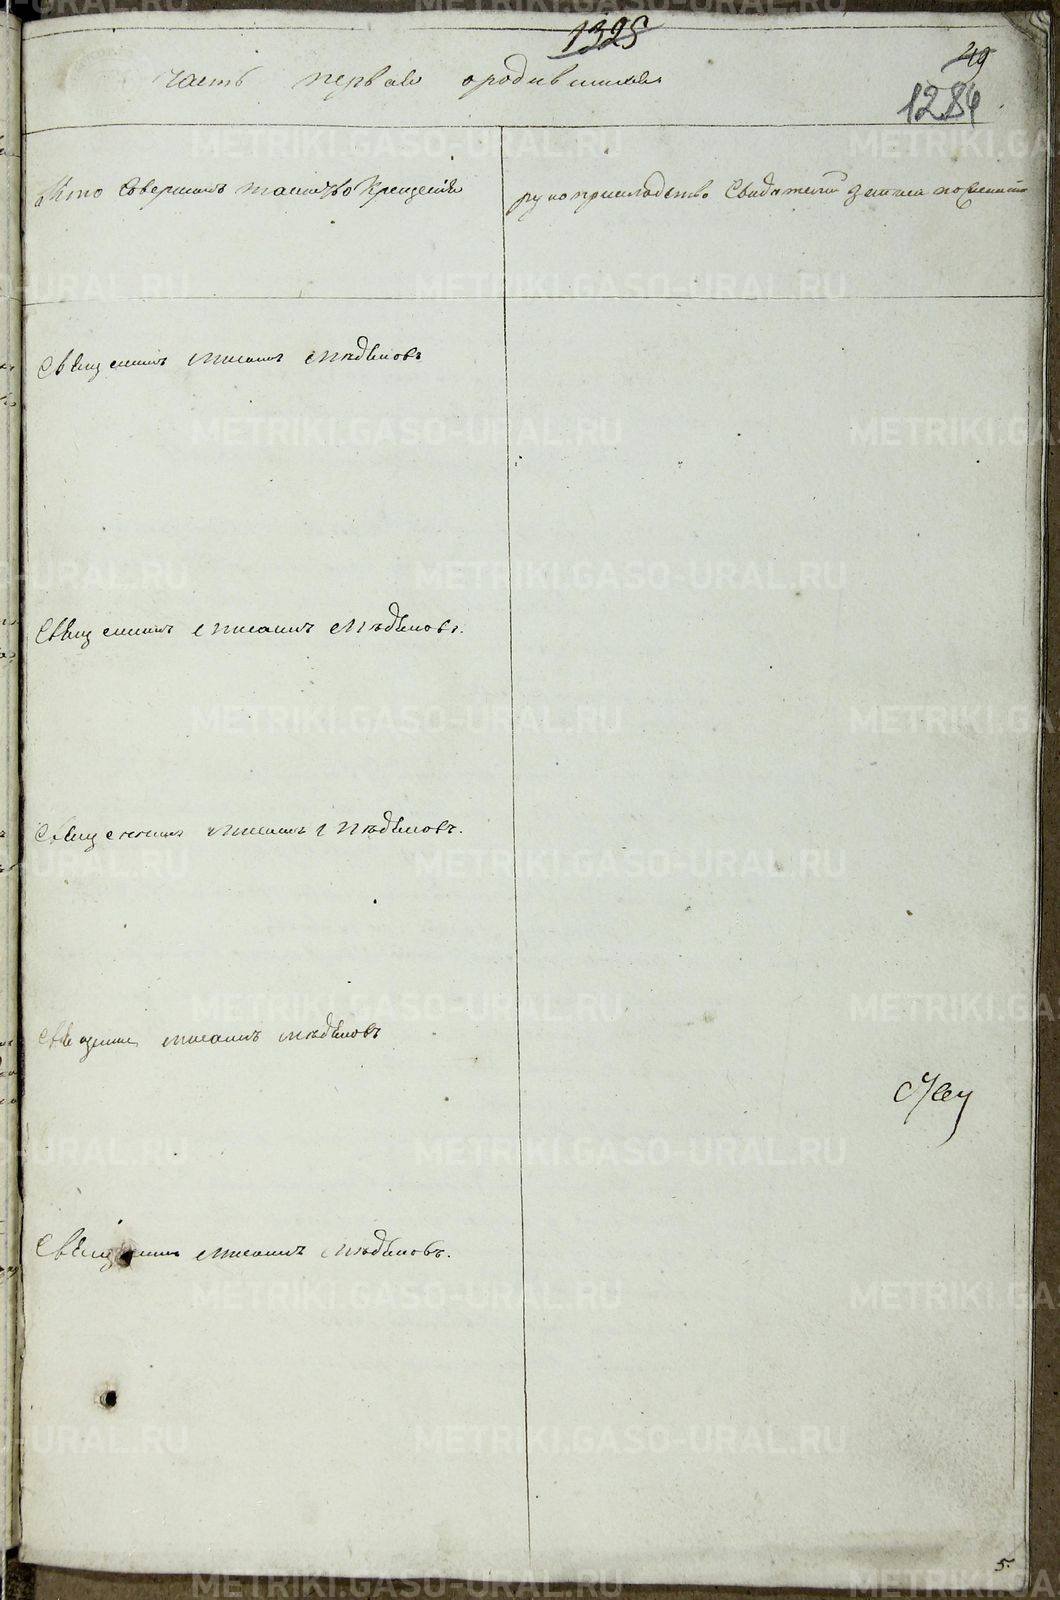 1325
49
часть первая ородившихся
1284
Кто Совершалъ таинство Крещенiя
рукоприкладство Свидетелей записи пожеланiю
Священникъ Михаилъ Мѣдѣновъ
Священникъ Михаилъ Мѣдѣновъ.
Священникъ Михаилъ Мѣдѣновъ.
Священникъ Михаилъ Мѣдѣновъ
Священникъ Михаилъ Мѣдѣновъ.
5.
METRIKI.GASO-URAL.RU